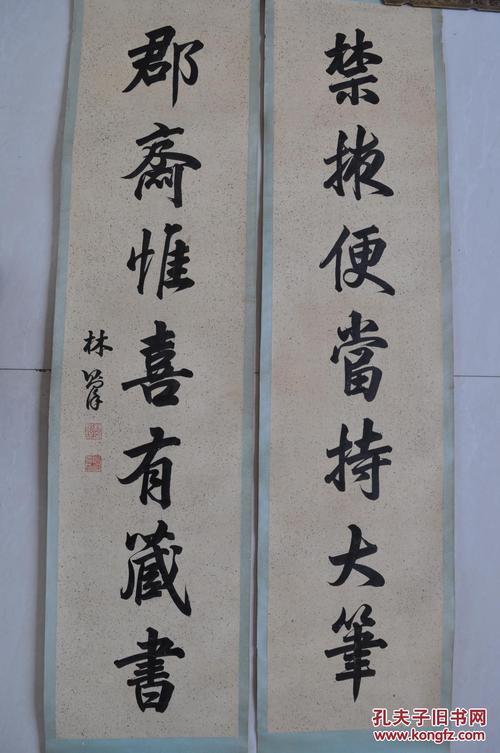 禁掖便當持大筆
郡齋惟喜有藏書
林
孔夫子旧书网
www.kongfz.com